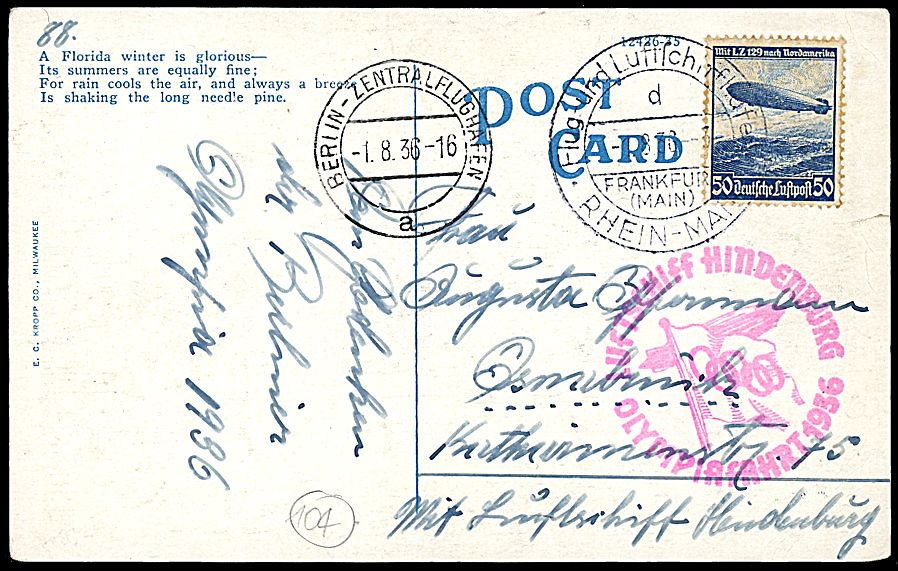 88.
A Florida winter is glorious—
Its summers are equally fine;
For rain cools the air, and always a breeze
Is shaking the long needle pine.
12426-35
POST
CARD
BERLIN-ZENTRALFLUGHAFEN
-1.8.36-16
a
Flug- und Luftschiffhafen
d
FRANKFURT
(MAIN)
RHEIN-MAIN
Mit LZ 129 nach Nordamerika
50 Deutsche Luftpost 50
LUFTSCHIFF HINDENBURG
OLYMPIAFAHRT 1936
E. C. KROPP CO., MILWAUKEE
Zum Gedenken
der Berliner
Olympia 1936
Frau
Augusta
Osnabrück
Katharinenstr. 75
Mit Luftschiff Hindenburg
104